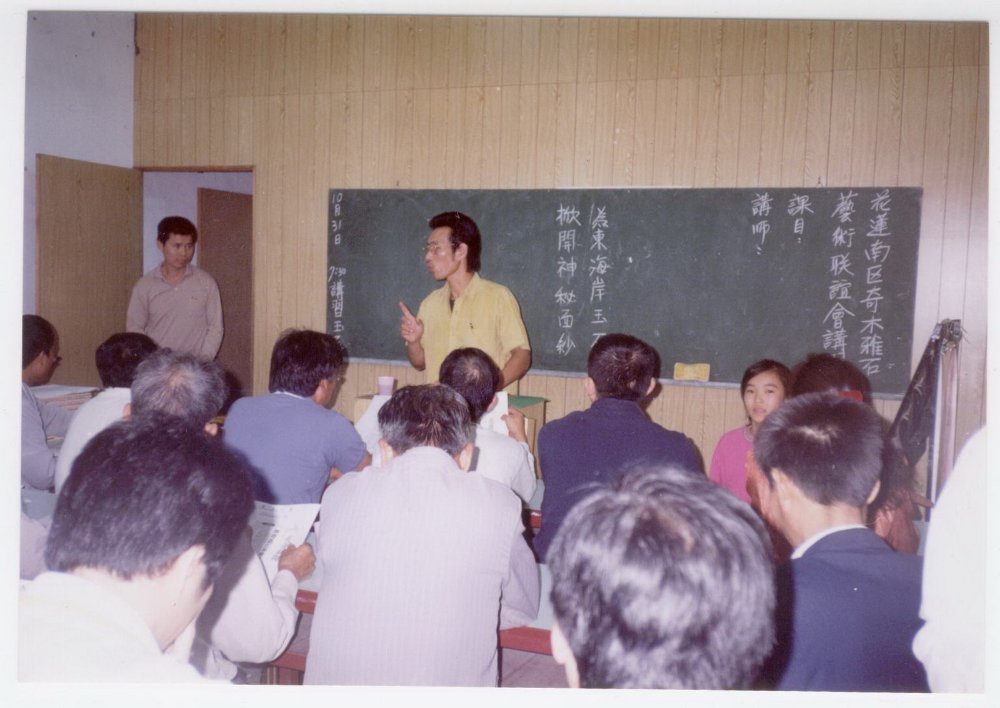 花蓮南区奇木雅石
藝術联誼會講
課目:
講師:
為東海岸玉石
掀開神秘面紗
10月31日 7:30講習玉